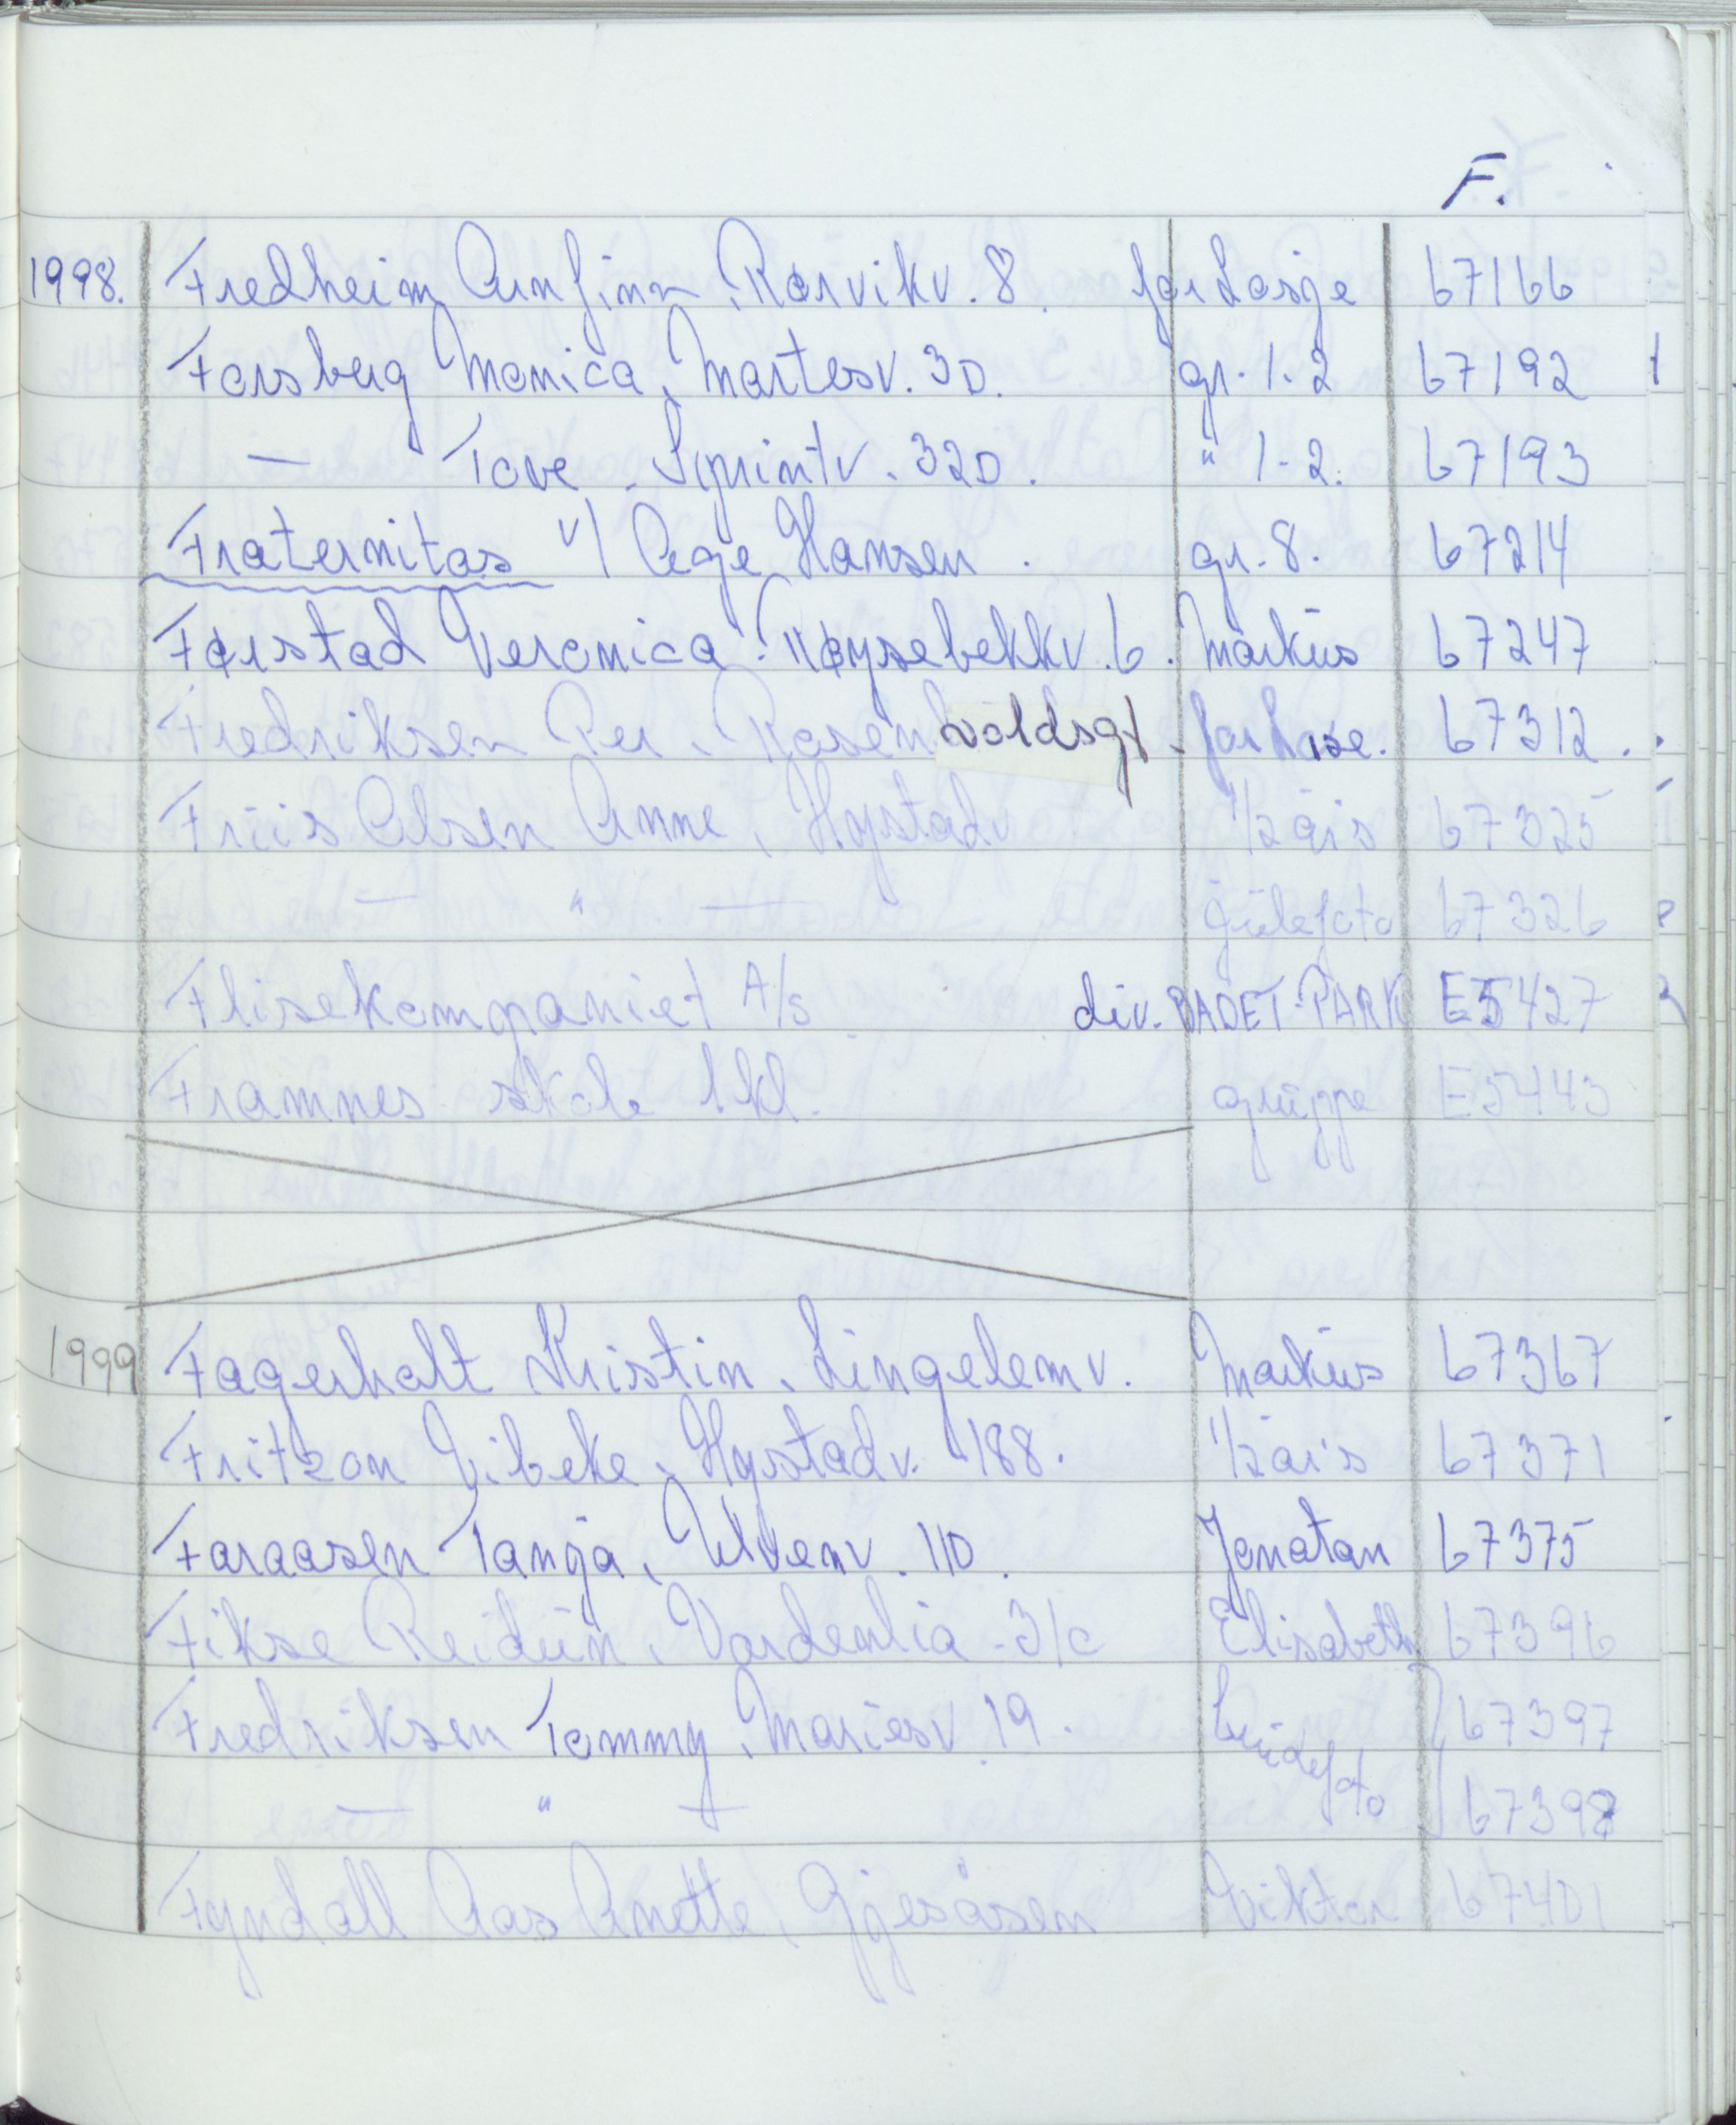 F.
1998. Fredheim Arnfinn, Rørvikv. 8. før Lasje 67166
Forsberg Monica, Martesv. 3D. gr. 1-2 67192
— Tove, Sprintv. 32D. " 1-2. 67193
Fraternitas v/ Åge Hansen. gr. 8. 67214
Førstad Veronica, Røysebekkv. 6. Markus 67247
Fredriksen Per, Rosenvoldsgt. 67312.
Friis Olsen Anne, Hystadv 1/2 års 67325
— " — Julefoto 67326
Flisekompaniet A/s div. BADET-PARK E5427
Framnes skole 1 kl. gruppe E5443
1999 Fagerholt Kristin, Lingelemv. Markus 67367
Fritzon Vibeke, Hystadv. 188. 1/2 års 67371
Faraasen Tanja, Ulvenv. 11D. Jonatan 67375
Fikse Reidun, Vardenlia 31c Elisabeth 67396
Fredriksen Tommy, Mariesv 19. brudefoto 67397
— " — 67398
Fyndall Aas Anette, Gjesåsen Viktor 67401